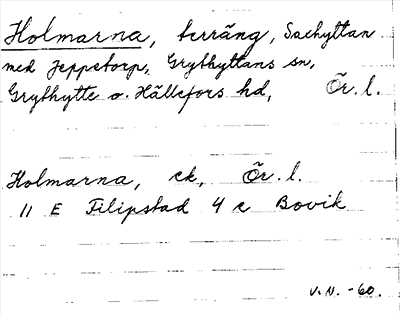 Holmarna, terräng, Saxhyttan
med Jeppetorp, Grythyttans sn,
Grythytte o. Hällefors hd, Ör. l.
Holmarna, ek, Ör. l.
11 E Filipstad 4 c Bovik
V. N. -60.